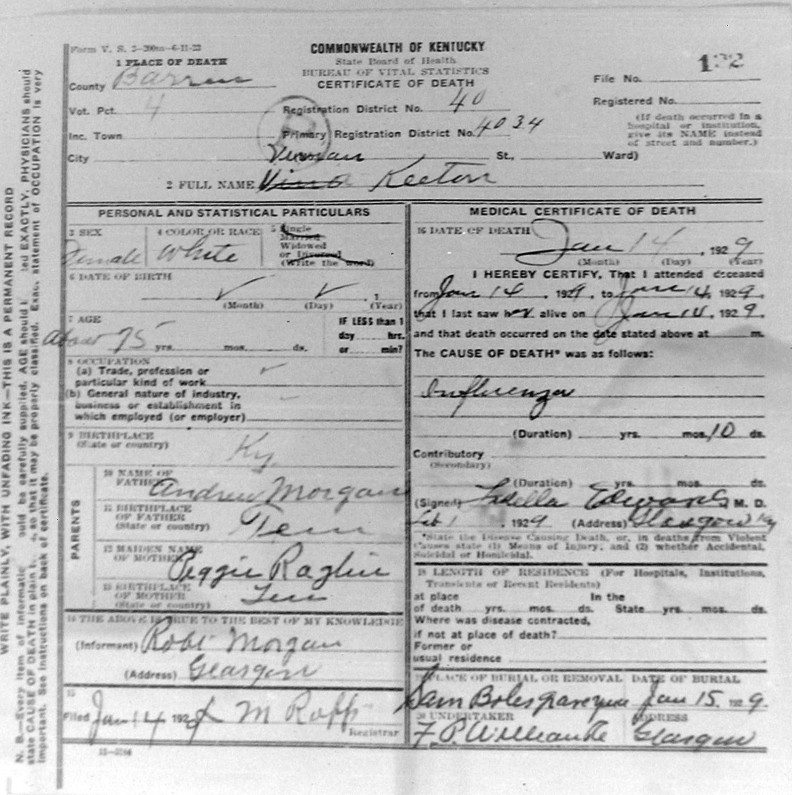 Form V. S. 2-200m-6-11-23
COMMONWEALTH OF KENTUCKY
State Board of Health
BUREAU OF VITAL STATISTICS
CERTIFICATE OF DEATH
132
1 PLACE OF DEATH
County Barren
File No.
Vot. Pct. 4
Registration District No. 40
Registered No.
Inc. Town
Primary Registration District No. 4034
(If death occurred in a hospital or institution, give its NAME instead of street and number.)
City
St., Ward)
2 FULL NAME Vina Keeton
PERSONAL AND STATISTICAL PARTICULARS
3 SEX
Female
4 COLOR OR RACE
White
5 Single
Married
Widowed
or Divorced
(Write the word)
6 DATE OF BIRTH
(Month) (Day) (Year)
7 AGE
about 75 yrs. mos. ds.
IF LESS than 1
day hrs.
or min?
8 OCCUPATION
(a) Trade, profession or
particular kind of work
(b) General nature of industry,
business or establishment in
which employed (or employer)
9 BIRTHPLACE
(State or country)
Ky.
PARENTS
10 NAME OF
FATHER Andrew Morgan
11 BIRTHPLACE
OF FATHER
(State or country) Tenn
12 MAIDEN NAME
OF MOTHER
13 BIRTHPLACE
OF MOTHER
(State or country)
14 THE ABOVE IS TRUE TO THE BEST OF MY KNOWLEDGE
(Informant) Robt Morgan
(Address) Glasgow
15
Filed Jan 14 192
Registrar
11-3184
MEDICAL CERTIFICATE OF DEATH
16 DATE OF DEATH
Jan 14, 1929
(Month) (Day) (Year)
I HEREBY CERTIFY, That I attended deceased
from Jan 14, 1929, to Jan 14, 1929,
that I last saw her alive on Jan 14, 1929,
and that death occurred on the date stated above at m.
The CAUSE OF DEATH* was as follows:
Influenza
(Duration) yrs. mos. 10 ds.
Contributory
(Secondary)
(Duration) yrs. mos. ds.
(Signed) Edwards M. D.
1929 (Address) Glasgow Ky
*State the Disease Causing Death, or, in deaths from Violent
Causes state (1) Means of Injury; and (2) whether Accidental,
Suicidal or Homicidal.
18 LENGTH OF RESIDENCE (For Hospitals, Institutions,
Transients or Recent Residents)
at place In the
of death yrs. mos. ds. State yrs. mos. ds.
Where was disease contracted,
if not at place of death?
Former or
usual residence
19 PLACE OF BURIAL OR REMOVAL DATE OF BURIAL
Jan 15, 1929.
20 UNDERTAKER ADDRESS
Glasgow
WRITE PLAINLY, WITH UNFADING INK—THIS IS A PERMANENT RECORD